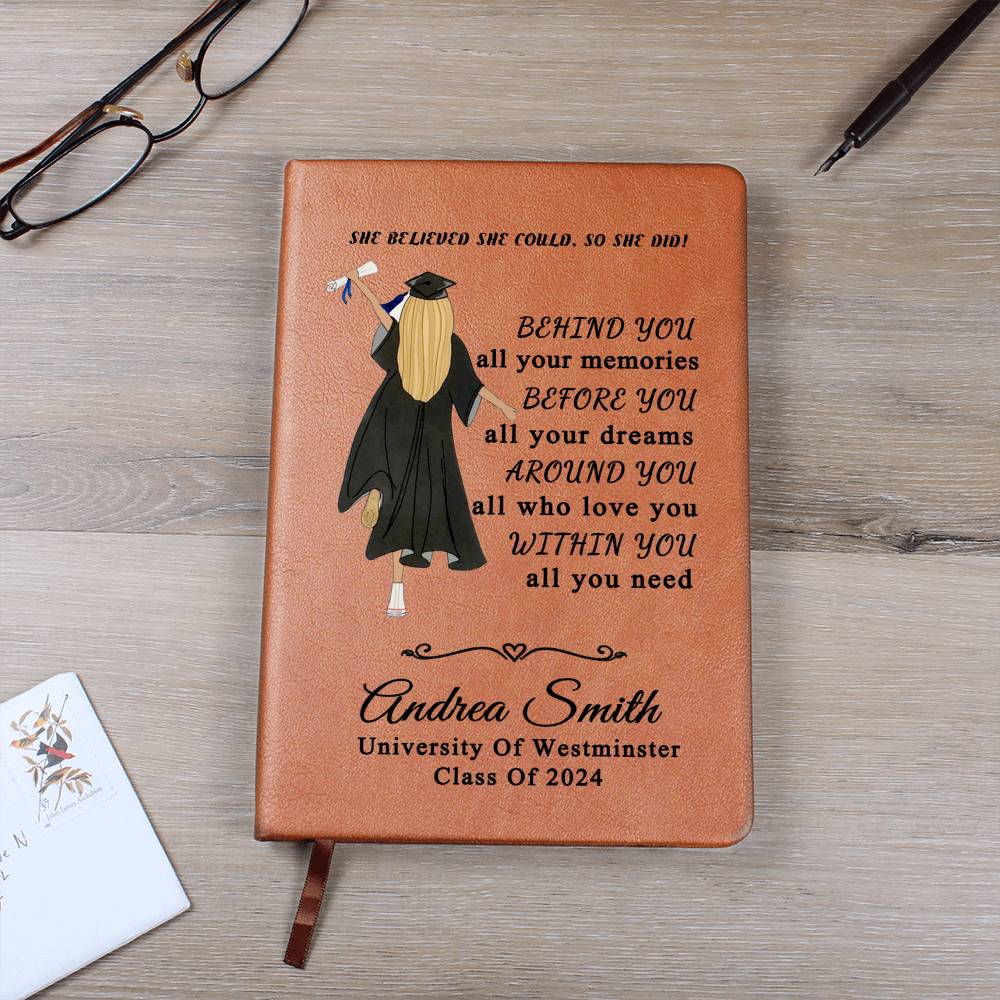 SHE BELIEVED SHE COULD, SO SHE DID!
BEHIND YOU
all your memories
BEFORE YOU
all your dreams
AROUND YOU
all who love you
WITHIN YOU
all you need
Andrea Smith
University Of Westminster
Class Of 2024
37
John James Audubon
N
L